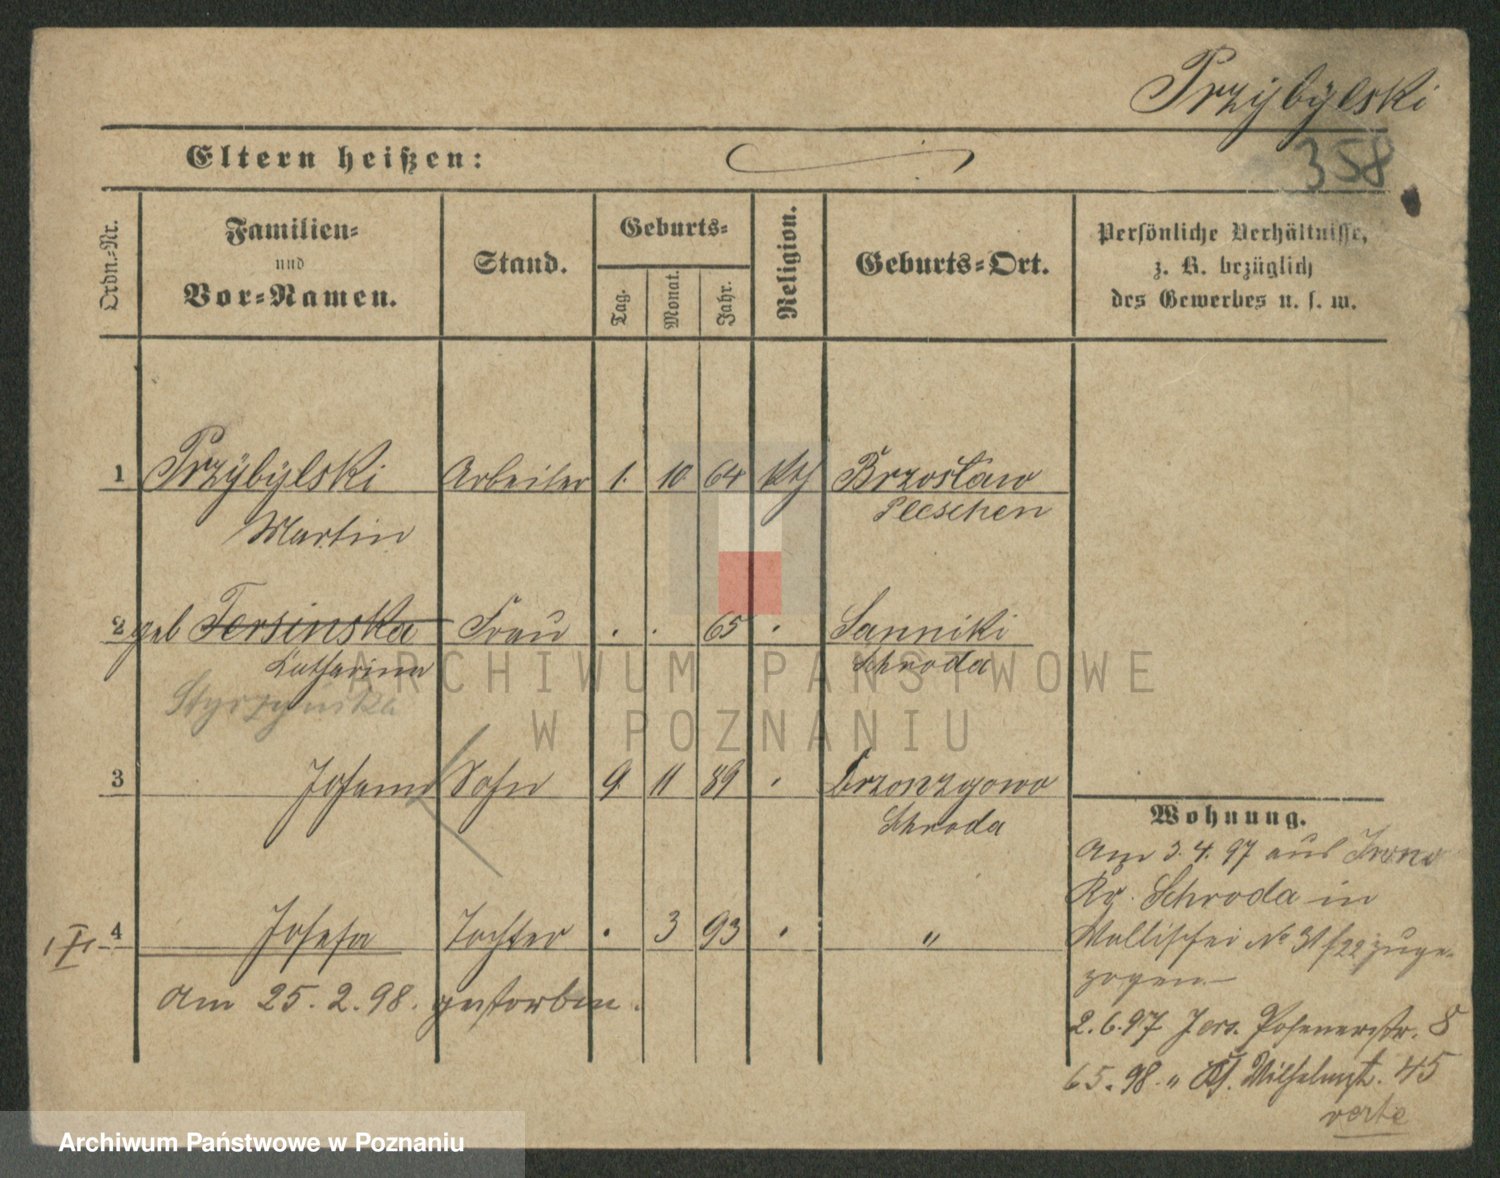 Przÿbÿlski
358
Eltern heißen:
Ordn.-Nr.
Familien-
und
Vor-Namen.
Stand.
Geburts-
Tag.
Monat.
Jahr.
Religion.
Geburts-Ort.
Persönliche Verhältnisse,
z. B. bezüglich
des Gewerbes u. s. w.
1 Przÿbÿlski Arbeiter 1. 10 64 kth Brzostaw
Martin Pleschen
2 geb Tersinska Frau . . 65 . Sanniki
Katharina Schroda
Styrzynska
3 Johann Sohn 9. 11 89 . Brzonzgowo
Schroda
Wohnung.
Am 3.4.97 aus
Kr. Schroda in
4 Josefa Tochter . 3 93 . "
Wallischei No 31/22 zuge-
zogen
am 25.2.98. gestorben.
2.6.97 Jers. Posenerstr. 8
6 5. 98. " Wilhelmst. 45
verte
ARCHIWUM PAŃSTWOWE
W POZNANIU
Archiwum Państwowe w Poznaniu